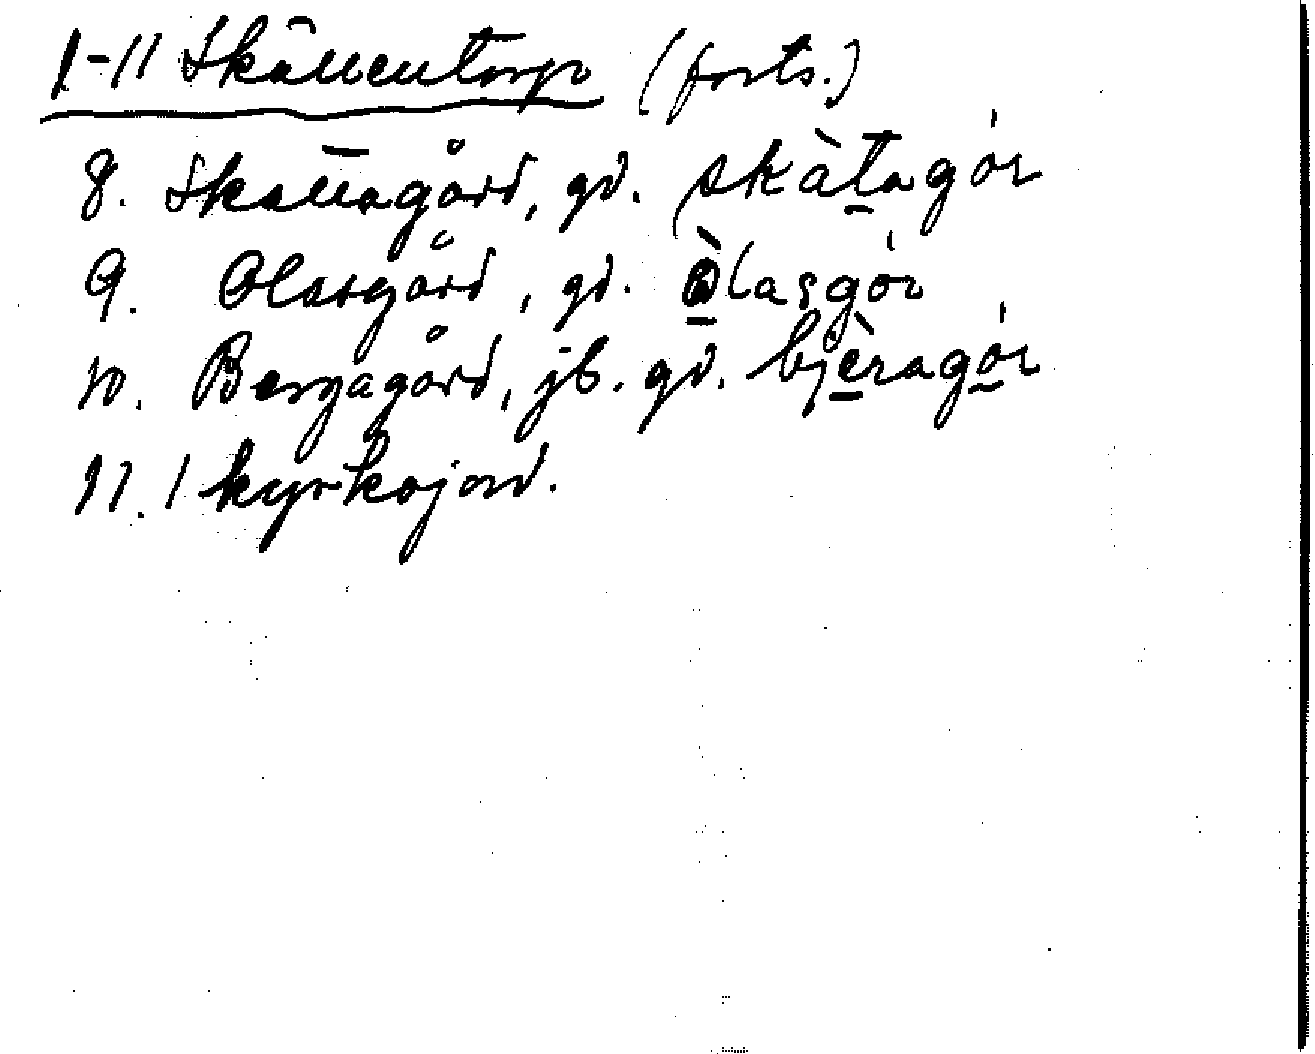 1-11 (forts.)
8. Skattagård, gd. skàtagór
9. Olasgård, gd. òlasgór
10. Bergagård, jb. gd. bjèragór
11. 1 kyrkojord.